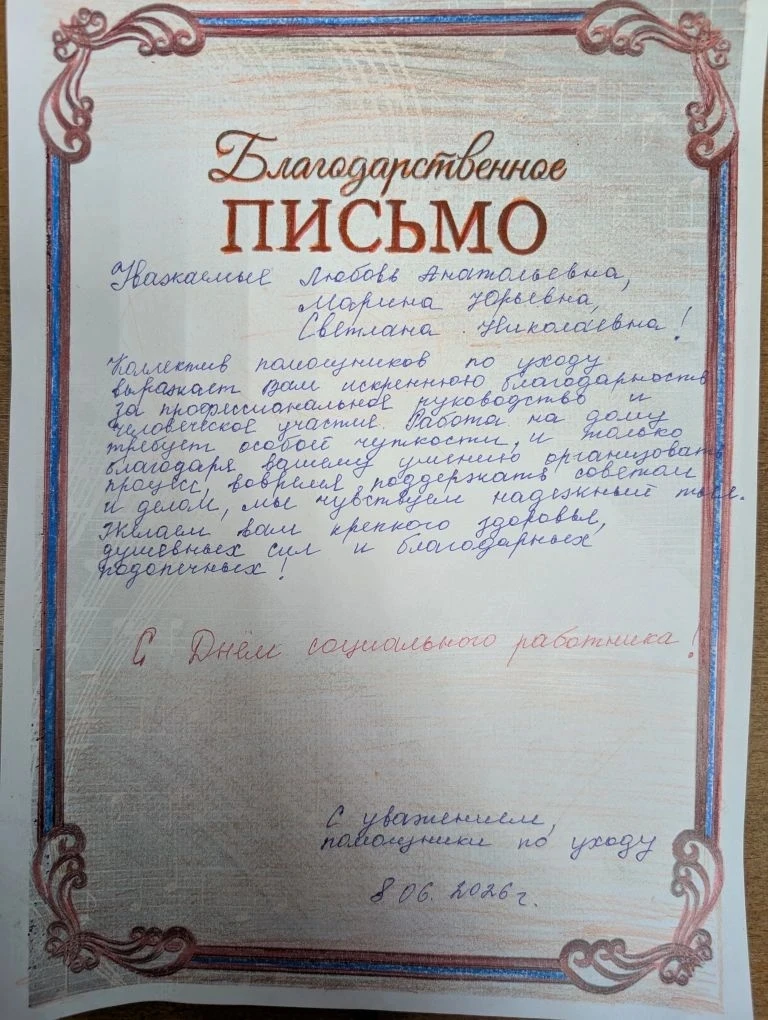 Благодарственное
ПИСЬМО
Уважаемые Любовь Анатольевна,
Марина Юрьевна,
Светлана Николаевна!
Коллектив помощников по уходу
выражает вам искреннюю благодарность
за профессиональное руководство и
человеческое участие. Работа на дому
требует особой чуткости, и только
благодаря вашему умению организовать
процесс, вовремя поддержать советом
и делом, мы чувствуем надежный тыл.
Желаем вам крепкого здоровья,
душевных сил и благодарных
подопечных!
С Днём социального работника!
С уважением,
помощники по уходу
8 06. 2026 г.